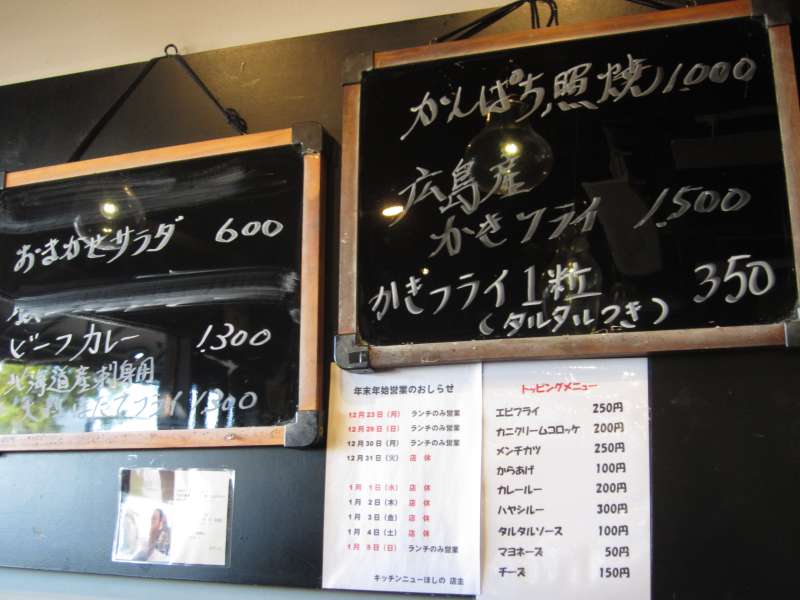 おまかせサラダ 600
ビーフカレー 1.300
北海道産刺身用
ほたてフライ 1.300
かんぱち照焼 1.000
広島産
かきフライ 1.500
かきフライ1粒 350
(タルタルつき)
年末年始営業のおしらせ
12月23日(月) ランチのみ営業
12月29日(日) ランチのみ営業
12月30日(月) ランチのみ営業
12月31日(火) 店 休
1月 1日(水) 店 休
1月 2日(木) 店 休
1月 3日(金) 店 休
1月 4日(土) 店 休
1月 5日(日) ランチのみ営業
キッチンニューほしの 店主
トッピングメニュー
エビフライ 250円
カニクリームコロッケ 200円
メンチカツ 250円
からあげ 100円
カレールー 200円
ハヤシルー 300円
タルタルソース 100円
マヨネーズ 50円
チーズ 150円